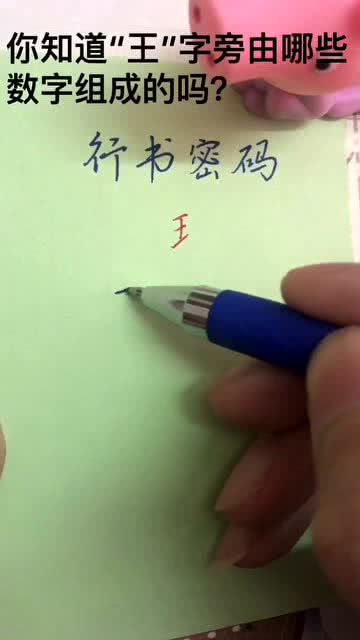 你知道“王”字旁由哪些
数字组成的吗?
行书密码
王